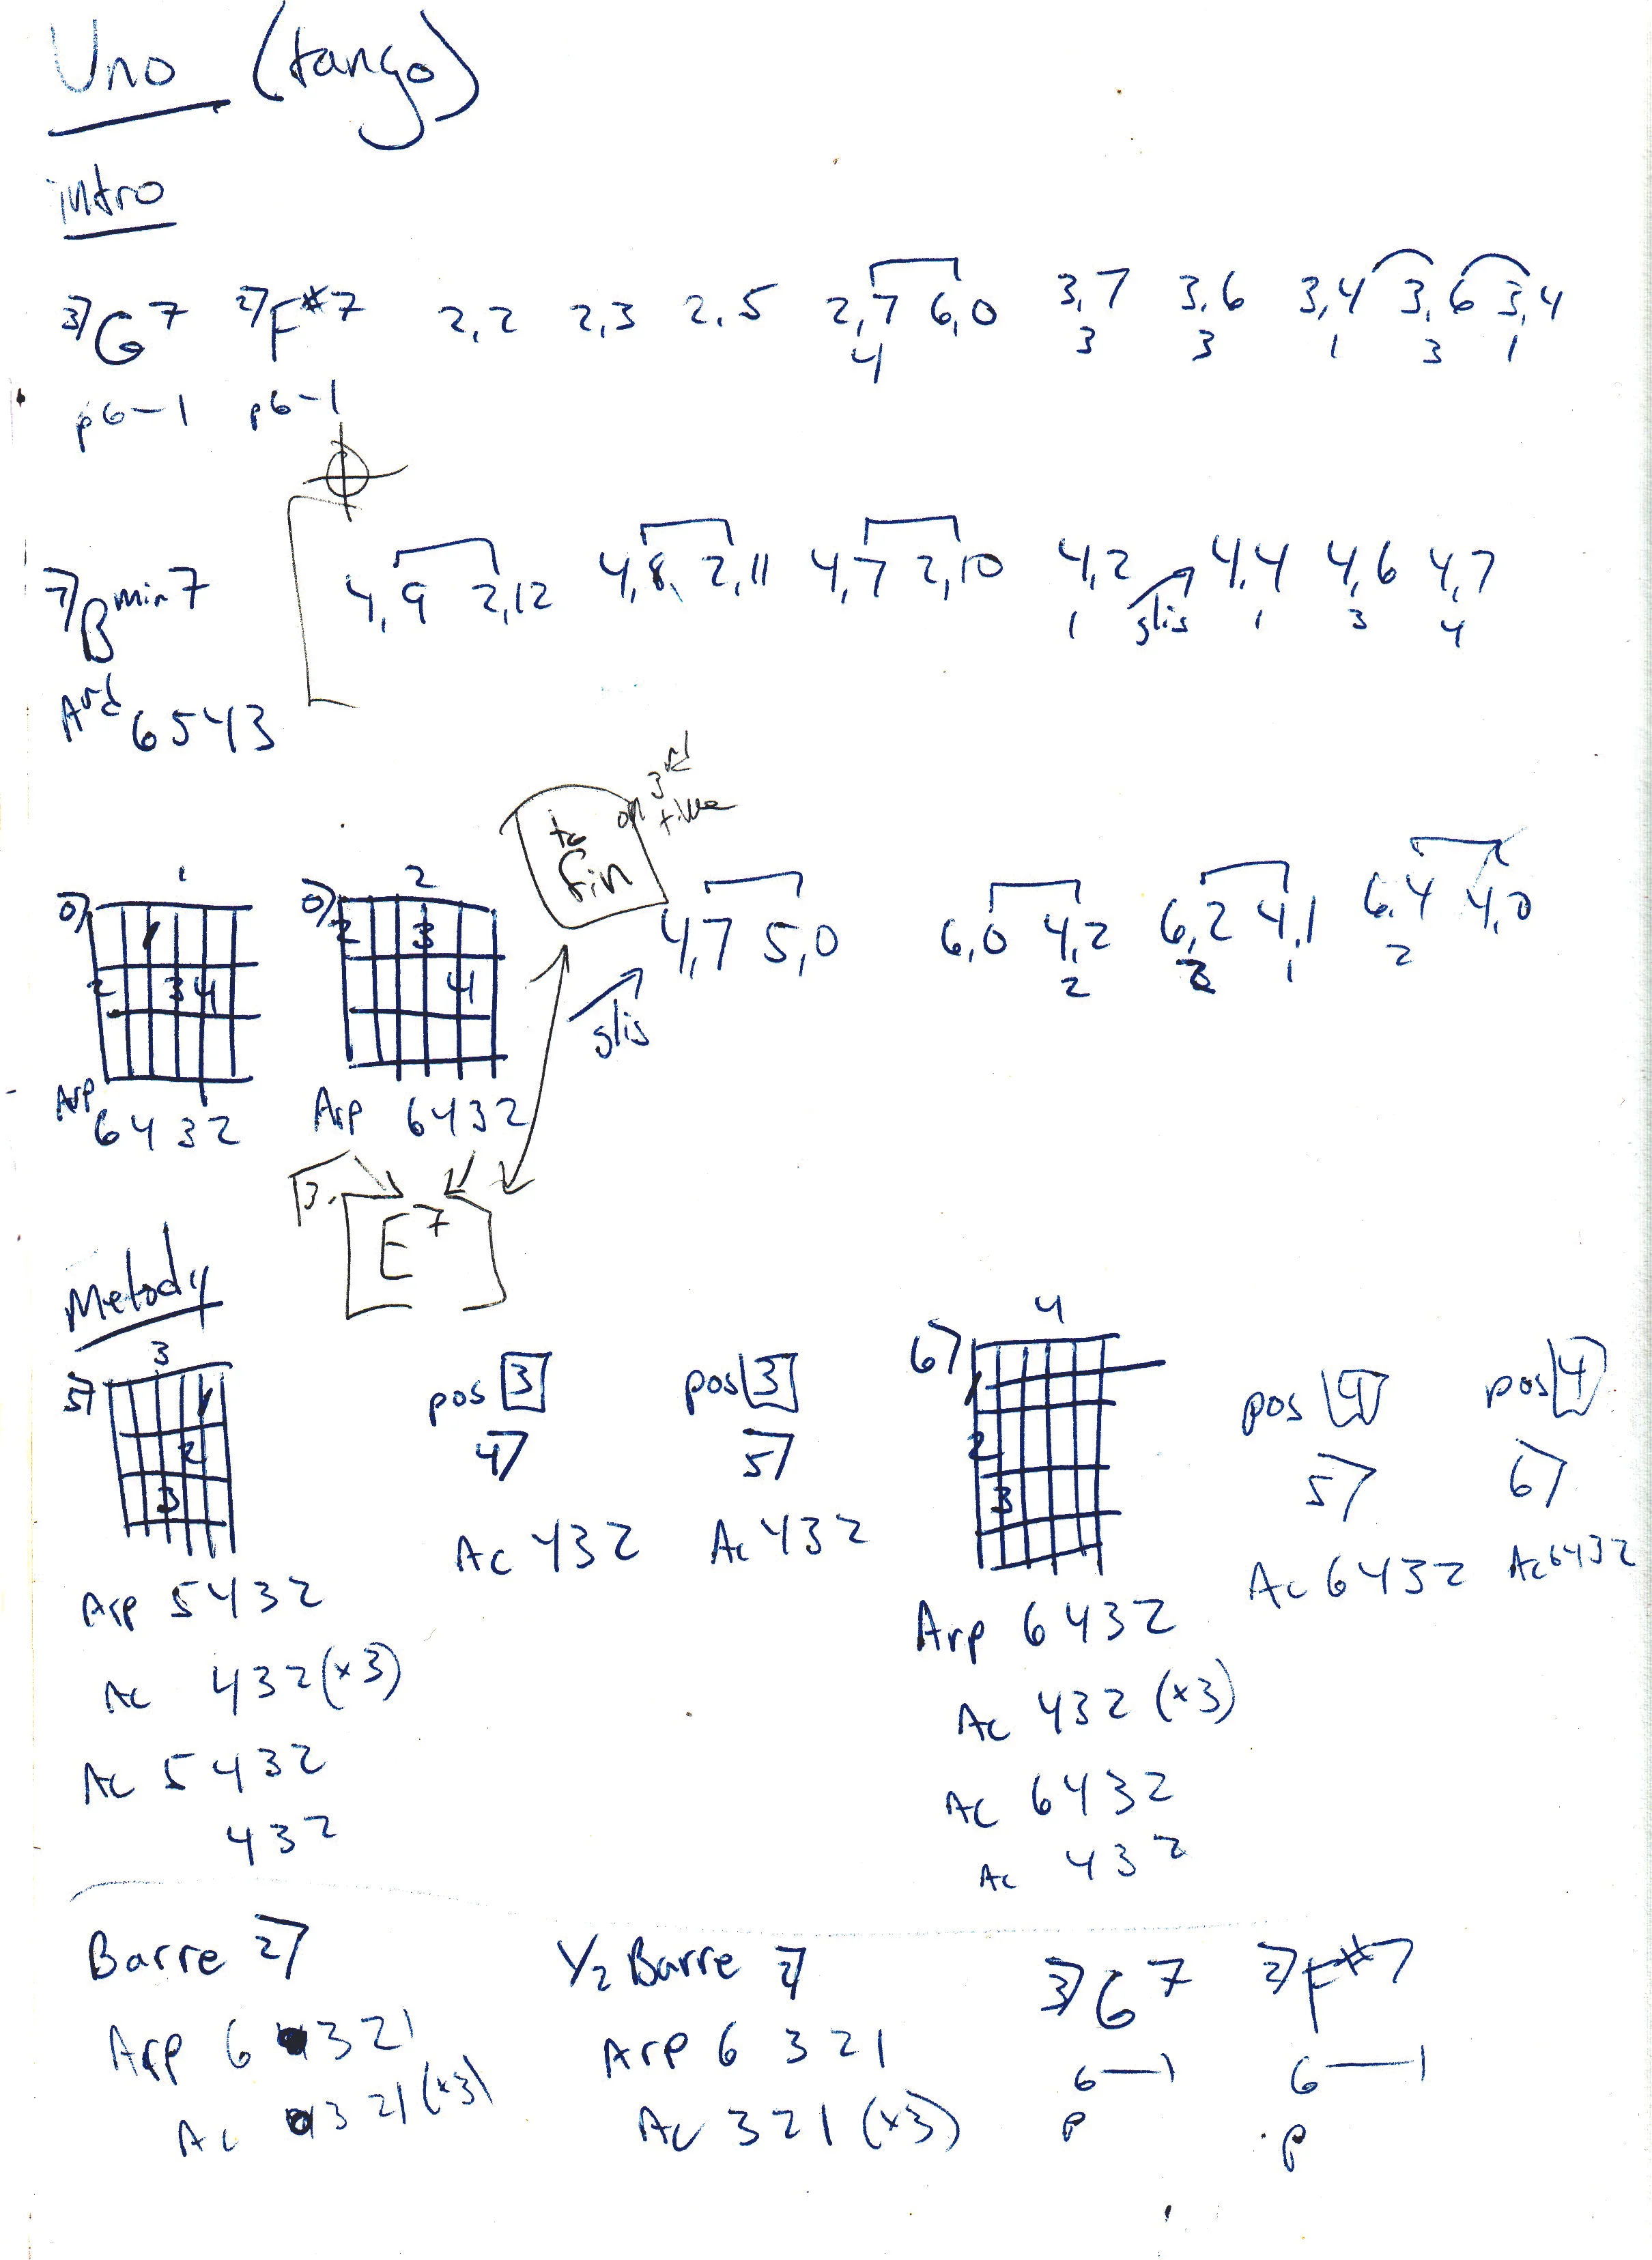 Uno (tango)
intro
3) G7 2) F#7 2,2 2,3 2,5 2,7 6,0 3,7 3,6 3,4 3,6 3,4
4 3 3 1 3 1
p6-1 p6-1
7) Bmin7 4,9 2,12 4,8 2,11 4,7 2,10 4,2 4,4 4,6 4,7
1 glis 1 3 4
6543
to fin on 3rd time
1 2
0) 0)
1 2 3
2 3 4 4
4,7 5,0 6,0 4,2 6,2 4,1 6,4 4,0
glis 2 2 1 2
Arp 6432 Arp 6432
E7
Melody
3 4
5) 1 2 3 pos 3 pos 3 6) 1 2 3 pos 4 pos 4
4) 5) 5) 6)
Ac 432 Ac 432 Ac 6432 Ac 6432
Arp 5432 Arp 6432
Ac 432 (x3) Ac 432 (x3)
Ac 5432 Ac 6432
432 Ac 432
Barre 2) 1/2 Barre 3) G7 2) F#7
Arp 6 321 Arp 6 321 6—1 6—1
Ac 321 (x3) Ac 321 (x3) p p